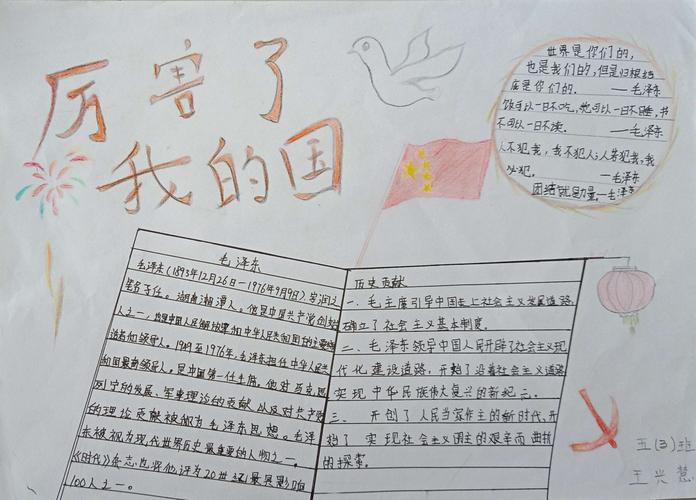 厉害了
我的国
世界是你们的,
也是我们的,但是归根结
底是你们的。 —毛泽东
饭可以一日不吃,觉可以一日不睡,书
不可以一日不读。 —毛泽东
人不犯我,我不犯人;人若犯我,我
必犯。 —毛泽东
团结就是力量—毛泽东
毛泽东
毛泽东(1893年12月26日—1976年9月9日),字润之
笔名子任。湖南湘潭人。他是中国共产党创始
人之一,
缔造者和领导人。1949至1976年,毛泽东担任中华人民共
和国最高领导人。是中国第一任主席。他对马克思
列宁的发展、军事理论的贡献以及对共产党
的理论贡献被称为毛泽东思想。毛泽
东被视为现代世界历史最重要的人物之一。
《时代》杂志也将他评为20世纪最具影响
100人之一。
历史贡献
一、毛主席引导中国走上社会主义发展道路,
确立了社会主义基本制度。
二、毛泽东领导中国人民开辟了社会主义现
代化建设道路,开始了沿着社会主义道路
实现中华民族伟大复兴的新纪元。
三、开创了人民当家作主的新时代、开
始了实现社会主义国主的艰辛而曲折
的探索。
五(3)班
王兴慧